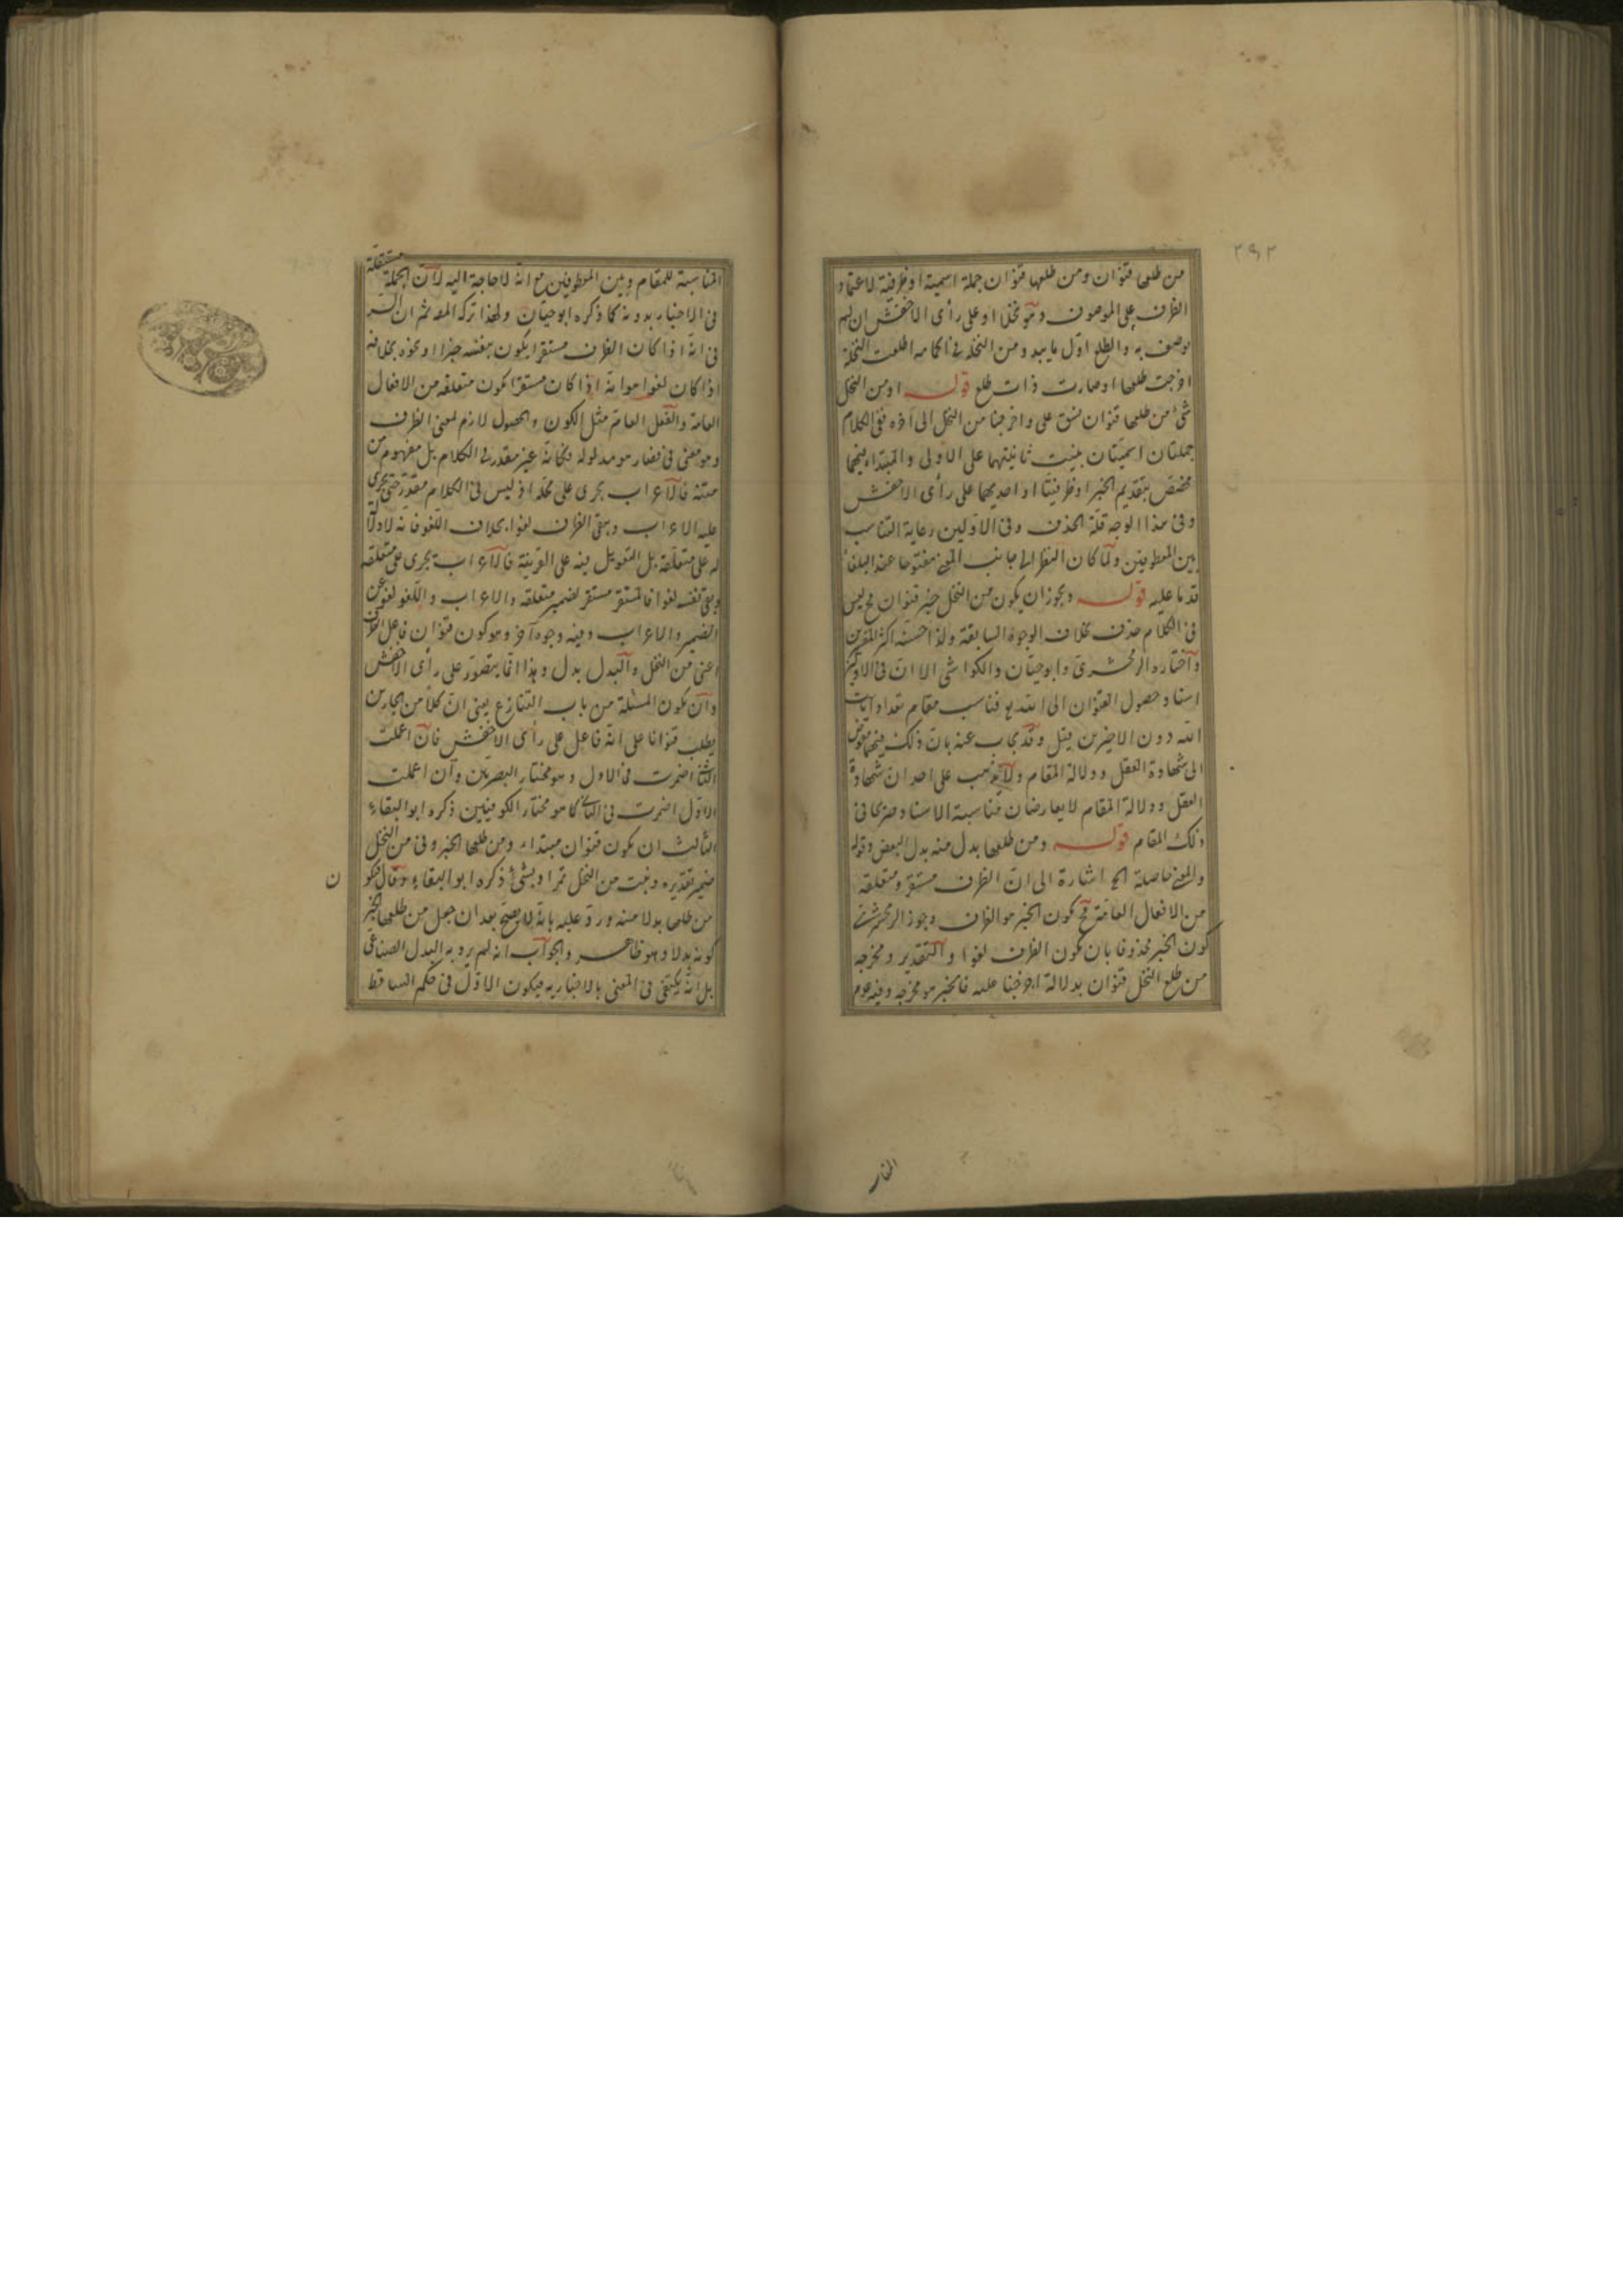 ٢٩٢
من طلعها قنوان ومن طلعها قنوان جملة اسمية او ظرفية لاعتماد
الظرف على الموصوف وهو نخلا او على رأى الاخفش ان لم
يوصف به والطلع اول ما يبدو من النخلة فى اكمامه اطلعت النخلة
اخرجت طلعها او صارت ذات طلع قوله او من النخل
شئ من طلعها قنوان نسق على واخرجنا من النخل الى آخره ففى الكلام
جملتان اسميتان بنيت ثانيتهما على الاولى والمبتدا فيهما
مخصص بتقديم الخبر او ظرفيتا او احديهما على رأى الاخفش
وفى هذا الوجه قلة الحذف وفى الاولين رعاية التناسب
بين المعطوفين ولما كان النظر الى جانب المعنى مفتوحا عند البلغاء
قدما عليه قوله ويجوز ان يكون من النخل خبر قنوان ح ليس
فى الكلام حذف بخلاف الوجوه السابقة ولذا حسنه اكثر المعربين
واختاره الزمخشرى وابو حيان والكواشى الا ان فى الاول
اسناد حصول القنوان الى الله تع فناسب مقام تعداد آيات
الله دون الاخيرين قيل وقد يجاب عنه بان ذلك فيهما مفوض
الى شهادة العقل ودلالة المقام ولا يذهب على احد ان شهادة
العقل ودلالة المقام لا يعارضان مناسبة الاسناد صريحا فى
ذلك المقام قوله ومن طلعها بدل منه بدل البعض وقوله
والمعنى حاصلة الخ اشارة الى ان الظرف مستقر ومتعلقه
من الافعال العامة ح يكون الخبر هو الظرف وجوز الزمخشرى
كون الخبر محذوفا بان يكون الظرف لغوا والتقدير ومخرجه
من طلع النخل قنوان بدلالة اخرجنا عليه فالخبر هو مخرجه وفيه عدم
النار
المناسبة للمقام وبين المعطوفين مع انه لا حاجة اليه لان الجملة مستقلة
فى الاخبار بدونه كما ذكره ابو حيان ولهذا تركه المص ثم ان السر
فى انه اذا كان الظرف مستقرا يكون بنفسه خبرا او نحوه بخلافه
اذا كان لغوا هو انه اذا كان مستقرا يكون متعلقه من الافعال
العامة والفعل العام مثل الكون والحصول لازم لمعنى الظرف
وهو معنى فى فصار هو مدلوله وكانه غير مقدر فى الكلام بل مفهوم من
متنه فالاعراب يجرى على محله اذ ليس فى الكلام مقدر حتى يجرى
عليه الاعراب ويبقى الظرف لغوا بخلاف اللغو فانه لا دلالة
له على متعلقه بل التعويل فيه على القرينة فالاعراب يجرى على متعلقه
ويبقى نفسه لغوا فالمستقر مستقر لضمير متعلقه والاعراب واللغو لغو عن
الضمير والاعراب وفيه وجوه آخر وهو كون قنوان فاعل الظرف
اعنى من النخل والبدل بدل وهذا انما يتصور على رأى الاخفش
وان يكون المسئلة من باب التنازع يعنى ان كلا من الجارين
يطلب قنوانا على انه فاعل على رأى الاخفش فان اعملت
الثانى اضمرت فى الاول وهو مختار البصريين وان اعملت
الاول اضمرت فى الثانى كما هو مختار الكوفيين ذكره ابو البقاء
الثالث ان يكون قنوان مبتداء ومن طلعها الخبر وفى من النخل
ضمير تقديره ونبت من النخل ثمر او شئ ذكره ابو البقاء وقال فيكون
من طلعها بدلا منه ورد عليه بانه لا يصح بعد ان جعل من طلعها الخبر
كونه بدلا وهو ظاهر والجواب انه لم يرد به البدل الصناعى
بل انه يكتفى فى المعنى بالاخبار به فيكون الاول فى حكم الساقط